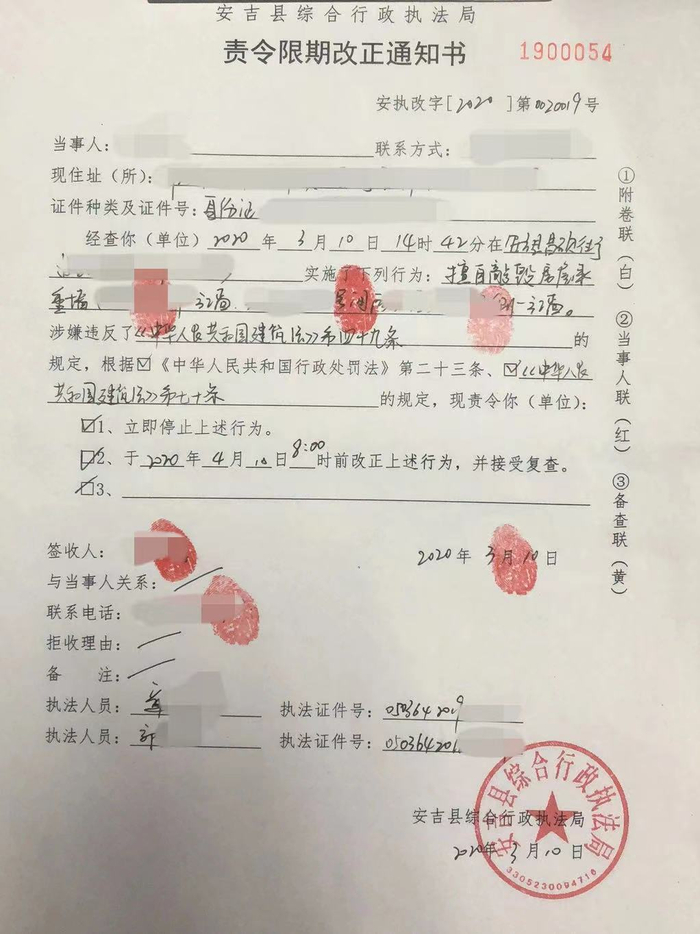 安吉县综合行政执法局
责令限期改正通知书
1900054
安执改字[2020]第0020019号
当事人:
联系方式:
现住址(所):
证件种类及证件号:身份证
经查你(单位)2020年3月10日14时42分在
实施了下列行为:擅自敲毁房屋承
重墙
涉嫌违反了《中华人民共和国建筑法》第四十九条的
规定,根据☑《中华人民共和国行政处罚法》第二十三条、☑《中华人民
共和国建筑法》第七十条的规定,现责令你(单位):
☑1、立即停止上述行为。
☑2、于2020年4月10日8:00时前改正上述行为,并接受复查。
3、
签收人:
2020年3月10日
与当事人关系:
联系电话:
拒收理由:
备 注:
执法人员:
执法证件号:0503642019
执法人员:
执法证件号:050364201
安吉县综合行政执法局
2020年3月10日
安吉县综合行政执法局
3305230094716
①附卷联(白) ②当事人联(红) ③备查联(黄)